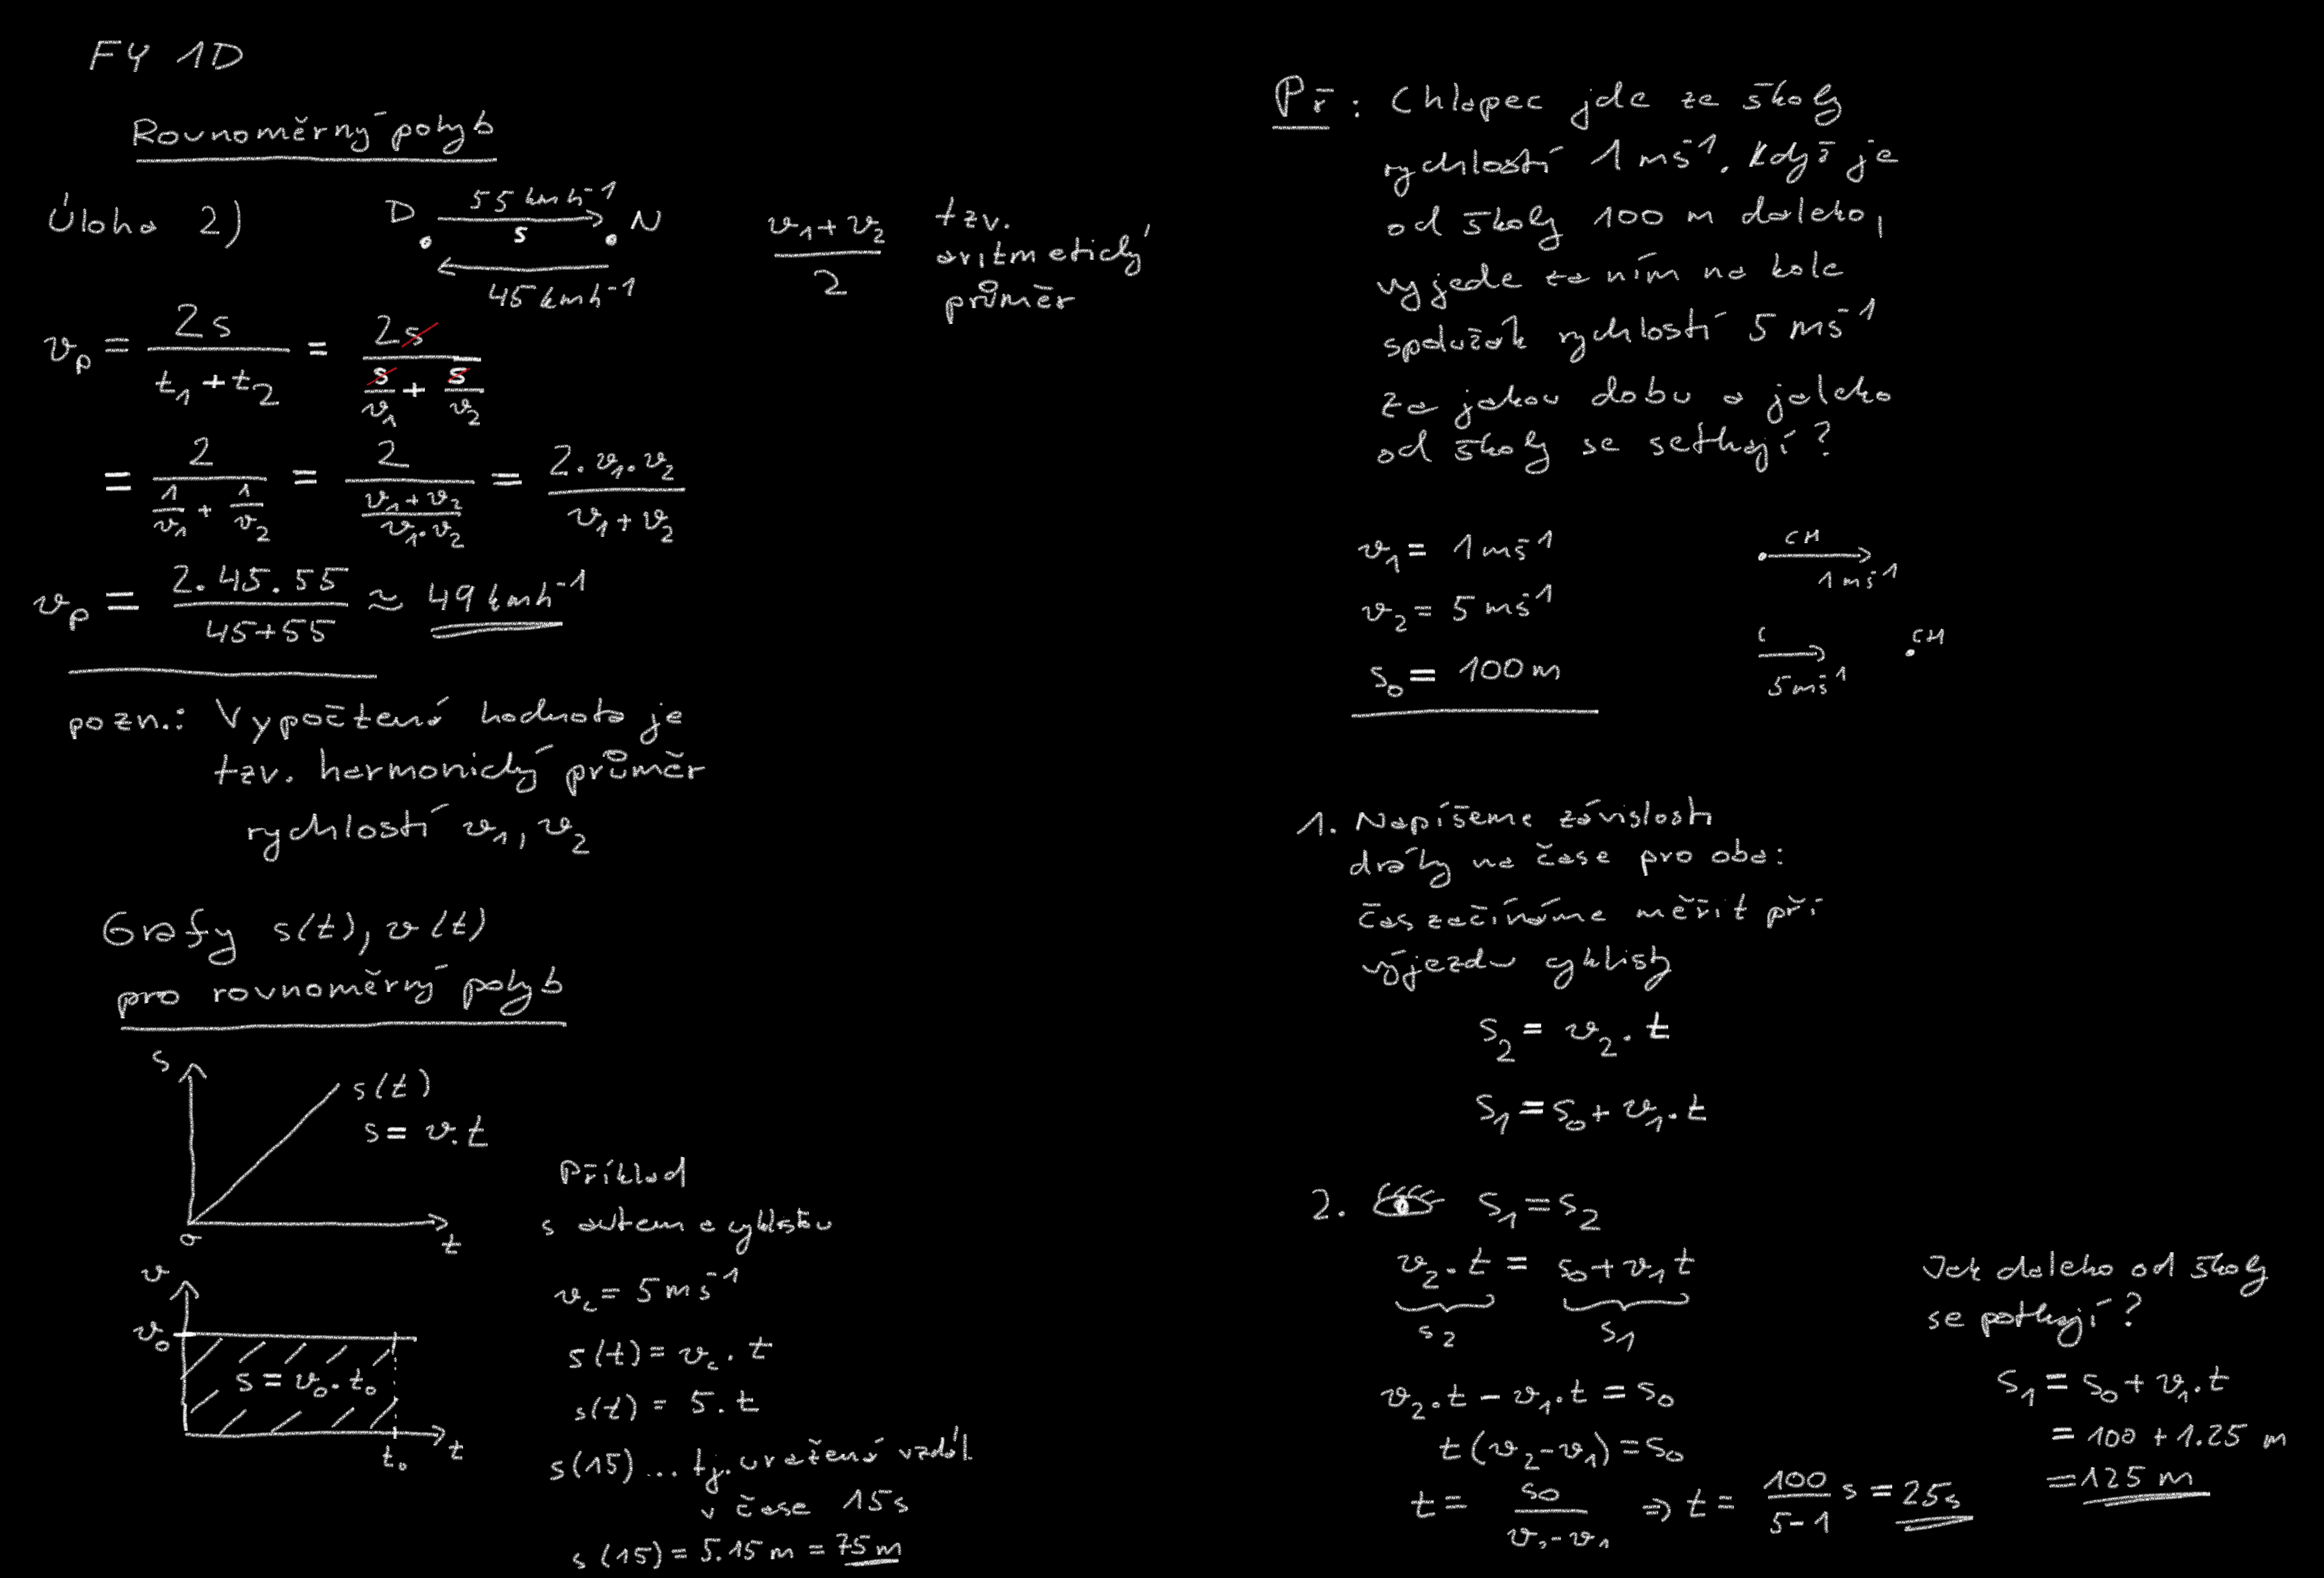 FY 1D
Rovnoměrný pohyb
Úloha 2)
D 55 kmh⁻¹ N
s
45 kmh⁻¹
(v₁+v₂)/2
tzv.
aritmetický
průměr
vₚ = 2s/(t₁+t₂) = 2s/(s/v₁ + s/v₂)
= 2/(1/v₁ + 1/v₂) = 2/((v₁+v₂)/(v₁.v₂)) = 2.v₁.v₂/(v₁+v₂)
vₚ = 2.45.55/(45+55) ≈ 49 kmh⁻¹
pozn.: Vypočtená hodnota je
tzv. harmonický průměr
rychlostí v₁, v₂
Grafy s(t), v(t)
pro rovnoměrný pohyb
s
s(t)
s = v.t
0
t
v
v₀
s = v₀.t₀
t₀
t
Příklad
s autem a cyklistou
v_c = 5 ms⁻¹
s(t) = v_c . t
s(t) = 5.t
s(15)... tj. uražená vzdál.
v čase 15 s
s(15) = 5.15 m = 75 m
Př: Chlapec jde ze školy
rychlostí 1 ms⁻¹. Když je
od školy 100 m daleko,
vyjede za ním na kole
spolužák rychlostí 5 ms⁻¹
Za jakou dobu a jaleko
od školy se setkají?
v₁ = 1 ms⁻¹
v₂ = 5 ms⁻¹
s₀ = 100 m
CH
1 ms⁻¹
C
CH
5 ms⁻¹
1. Napíšeme závislosti
dráhy na čase pro oba:
Čas začínáme měřit při
výjezdu cyklisty
s₂ = v₂.t
s₁ = s₀ + v₁.t
2. s₁ = s₂
v₂.t = s₀ + v₁t
s₂ s₁
v₂.t - v₁.t = s₀
t(v₂-v₁) = s₀
t = s₀/(v₂-v₁) ⇒ t = 100/(5-1) s = 25 s
Jak daleko od školy
se potkají?
s₁ = s₀ + v₁.t
= 100 + 1.25 m
= 125 m